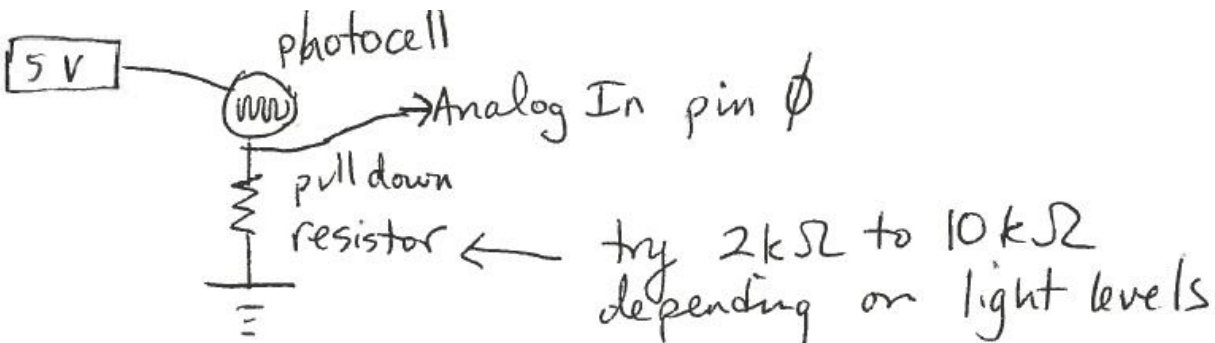 5 V
photocell
Analog In pin 0
pull down
resistor
try 2kΩ to 10kΩ
depending on light levels